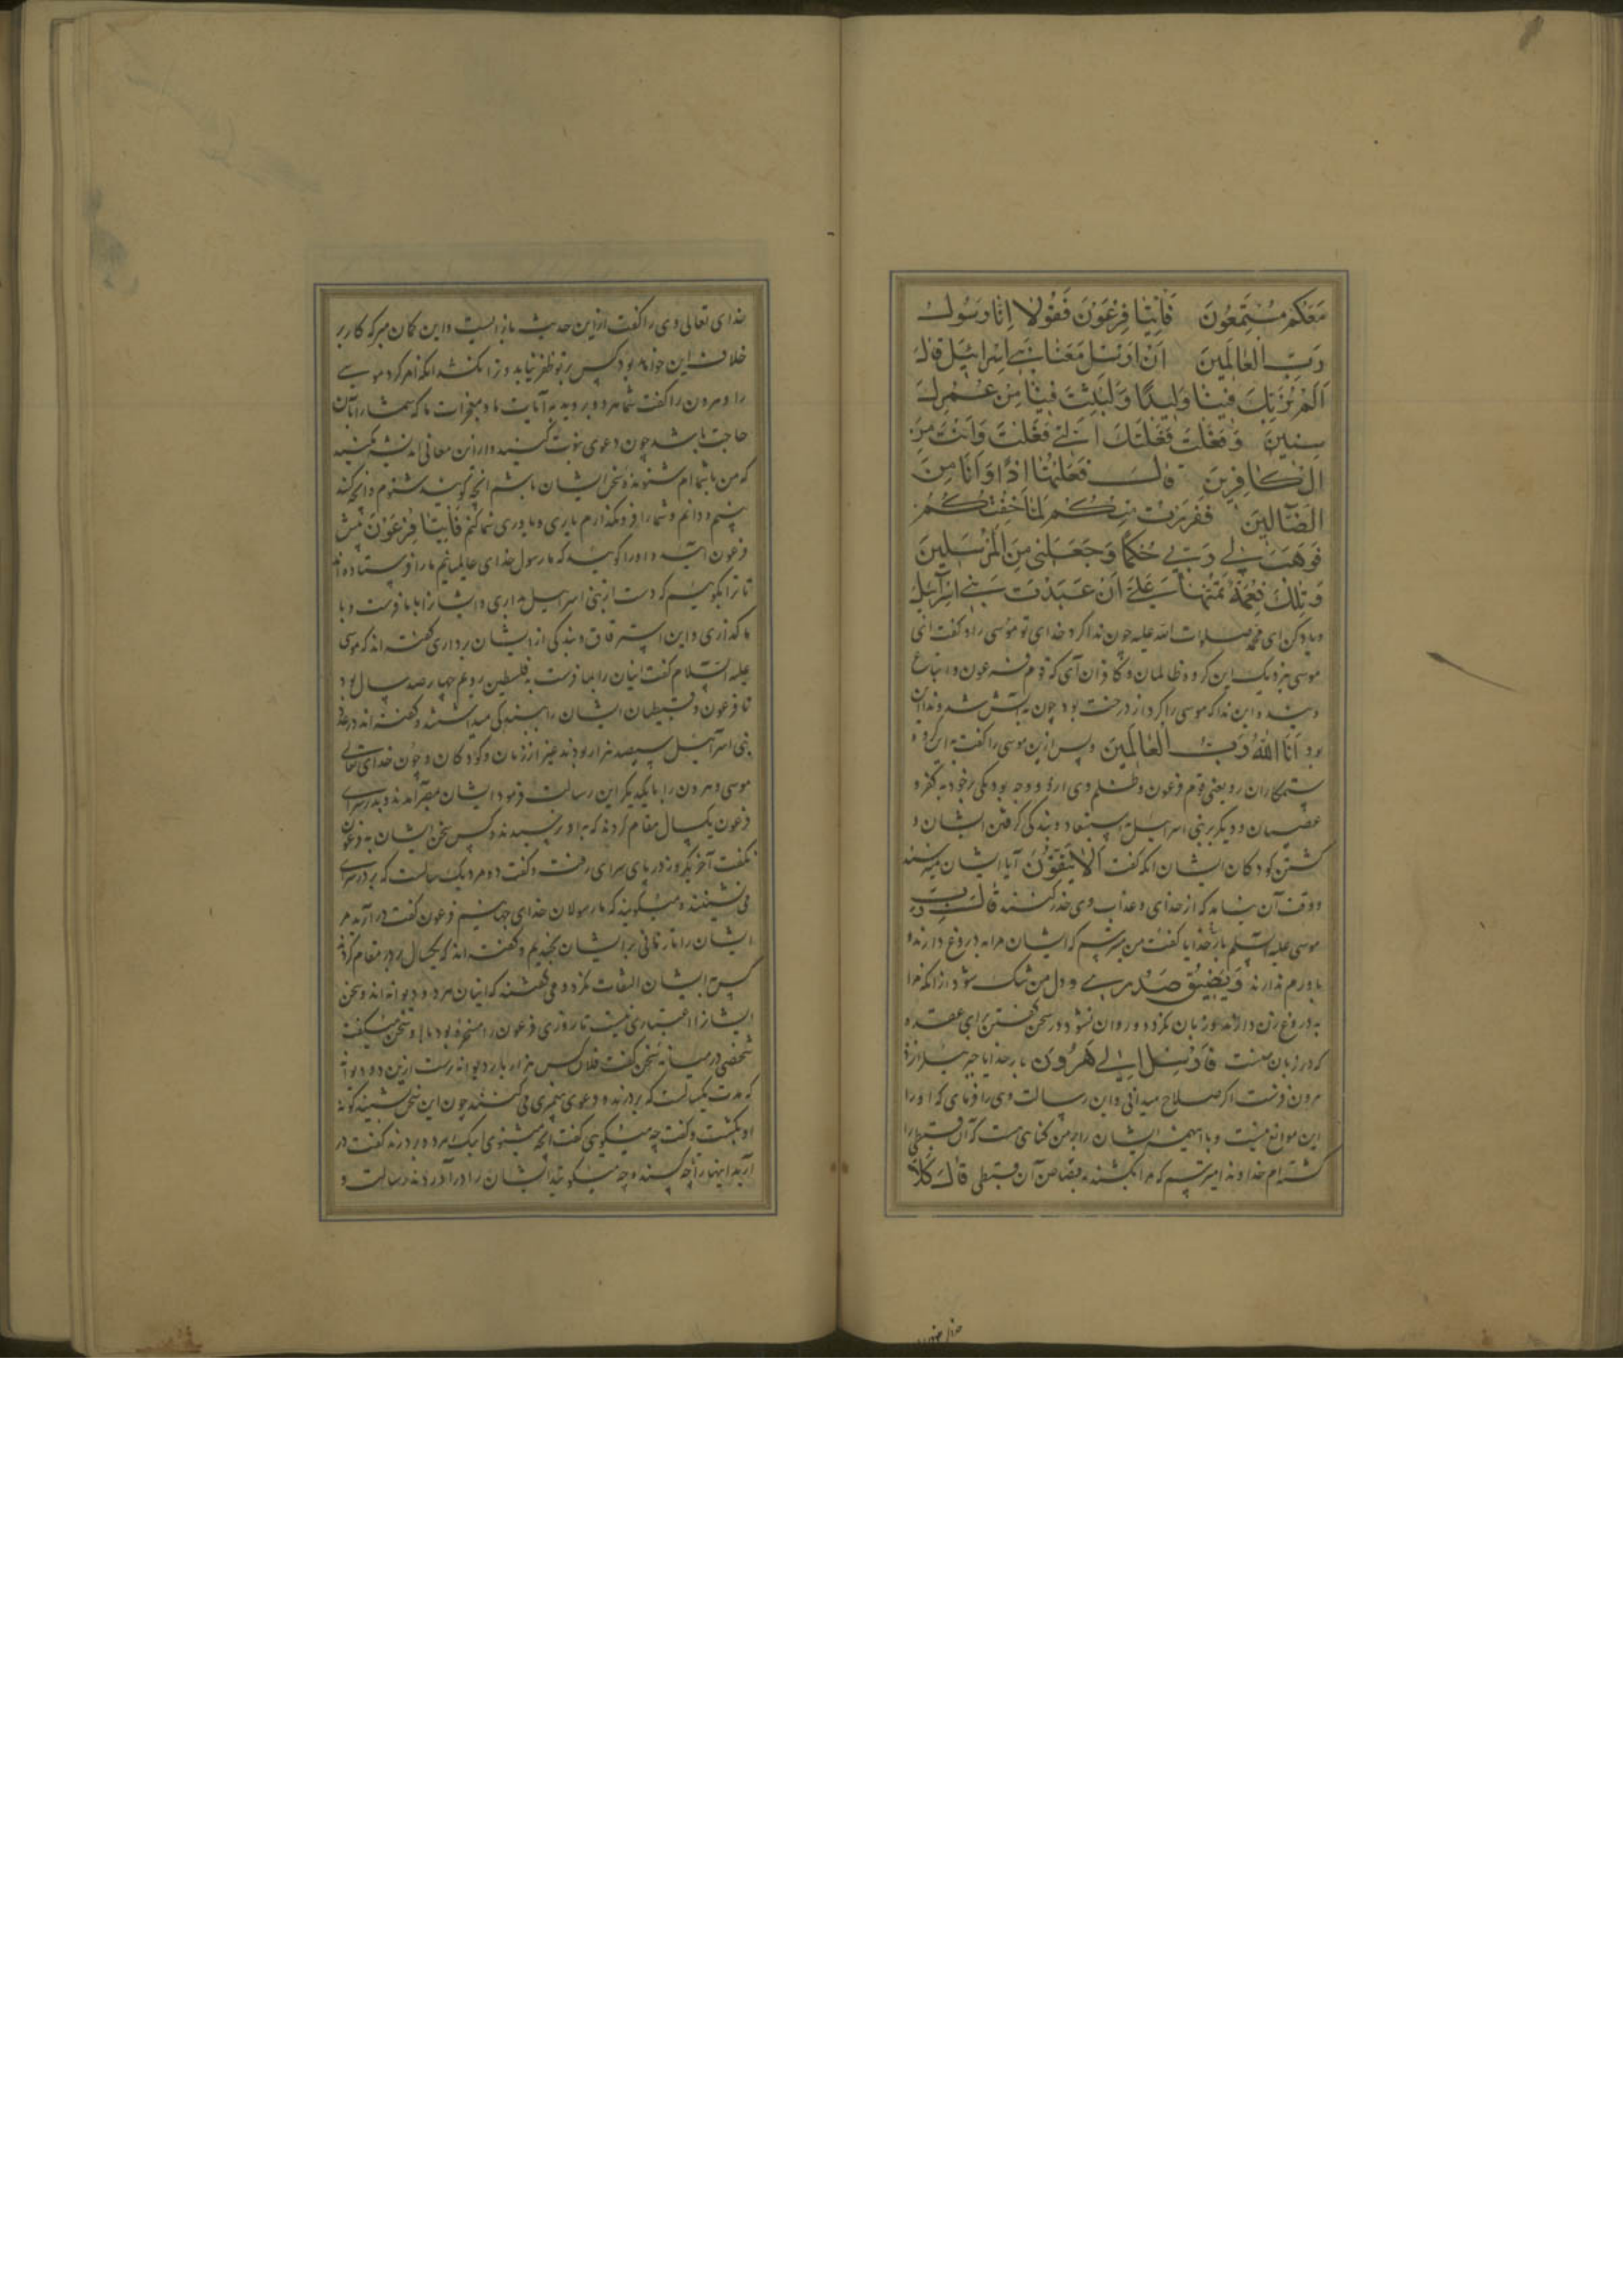 مَعَكُم مُسْتَمِعُونَ فَأْتِيَا فِرْعَوْنَ فَقُولَا إِنَّا رَسُولُ
رَبِّ الْعَالَمِينَ أَنْ أَرْسِلْ مَعَنَا بَنِي إِسْرَائِيلَ قَالَ
أَلَمْ نُرَبِّكَ فِينَا وَلِيدًا وَلَبِثْتَ فِينَا مِنْ عُمُرِكَ
سِنِينَ وَفَعَلْتَ فَعْلَتَكَ الَّتِي فَعَلْتَ وَأَنْتَ مِنَ
الْكَافِرِينَ قَالَ فَعَلْتُهَا إِذًا وَأَنَا مِنَ
الضَّالِّينَ فَفَرَرْتُ مِنْكُمْ لَمَّا خِفْتُكُمْ
فَوَهَبَ لِي رَبِّي حُكْمًا وَجَعَلَنِي مِنَ الْمُرْسَلِينَ
وَتِلْكَ نِعْمَةٌ تَمُنُّهَا عَلَيَّ أَنْ عَبَّدْتَ بَنِي إِسْرَائِيلَ
و یاد کن ای محمد صلوات الله علیه چون ندا کرد خدای تو موسی را و گفت ای
موسی بنزدیک این گروه ظالمان و کافران آی که قوم فرعون و اتباع
ویند و این ندا که موسی را کرد از درخت بود چون به آتش شد و ندا این
بود أَنَا اللهُ رَبُّ الْعَالَمِينَ و پس ازین موسی را گفت به این گروه
ستمکاران رو یعنی قوم فرعون و ظلم وی از دو وجه بود یکی بر خود به کفر و
عصیان و دیگر بر بنی اسرائیل به استبعاد و بندگی گرفتن ایشان و
کشتن کودکان ایشان آنکه گفت أَلَا يَتَّقُونَ آیا ایشان میترسند
و وقت آن نیامد که از خدای و عذاب وی حذر کنند قَالَ رَبِّ
موسی علیه السلم بار خدایا گفت من میترسم که ایشان مرا به دروغ دارند و
باورم ندارند وَيَضِيقُ صَدْرِي و دل من تنگ شود از آنکه مرا
به دروغ زن دارند و زبان نگردد و روان نشود در سخن گفتن برای عقده
که در زبان منست فَأَرْسِلْ إِلَى هَرُونَ بار خدایا جبرئیل را نزد
هرون فرست اگر صلاح میدانی و این رسالت وی را فرمای که او را
این موانع نیست و با این همه ایشان را بر من گناهی هست که آن قبطی را
کشته‌ام خداوندا میترسم که مرا بکشند بقصاص آن قبطی قَالَ كَلَّا
خدای تعالی وی را گفت ازین حدیث باز ایست و این گمان مبر که کار بر
خلاف این خواهد بود کس بر تو ظفر نیابد و ترا نکشد آنکه امر کرد موسی
را و هرون را گفت شما هر دو بروید به آیات ما و معجزات ما که شما را بآن
حاجت باشد چون دعوی نبوت کنید و از این معانی اندیشه مکنید
که من با شماام شنونده سخن ایشان باشم آنچه گویند شنوم و آنچه کنند
بینم و دانم و شما را فرو نگذارم یاری و یاوری شما کنم فَأْتِيَا فِرْعَوْنَ پیش
فرعون آئید و او را گوئید که ما رسول خدای عالمیانیم ما را فرستاده است
تا ترا بگوئیم که دست از بنی اسرائیل بداری و ایشانرا با ما فرست و با
ما گذاری و این استرقاق و بندگی از ایشان برداری گفته‌اند که موسی
علیه السّلام گفت اینان را بما فرست به فلسطین رویم چهارصد سال بود
تا فرعون و قبطیان ایشان را ببندگی میداشتند و گفته‌اند در عدد
بنی اسرآئیل سیصد هزار بودند غیر از زنان و کودکان و چون خدای تعالی
موسی و هرون را با یکدیگر این رسالت فرمود ایشان بمصر آمدند و بدر سرای
فرعون یکسال مقام کردند که به او نرسیدند و کس سخن ایشان به فرعون
نگفت آخر یکروز در بای سرای رفت و گفت دو مرد یک سالست که بر در سرای
می نشینند و میگویند که ما رسولان خدای جهانیم فرعون گفت در آرید مر
ایشان را تا زمانی بر ایشان بخندیم و گفته‌اند که یکسال بر در مقام کردند
کس به ایشان التفات نکرد و می گفتند که اینان مرد و دیوانه‌اند و سخن
ایشانرا اعتباری نیست تا روزی فرعون را مسخره بود با او سخن میگفت
شخصی در میانه سخن گفت فلان کس هزار بار دیوانه ترست ازین دو دیوانه
که مدت یکسالست که بر درند و دعوی پیغمبری می کنند چون این سخن شنید گونه
او بگشت و گفت چه میگویی گفت آنچه میشنوی اینک هر دو بر درند گفت در
آرید اینها را چه کسند و چه میگویند ایشان را درآوردند رسالت و